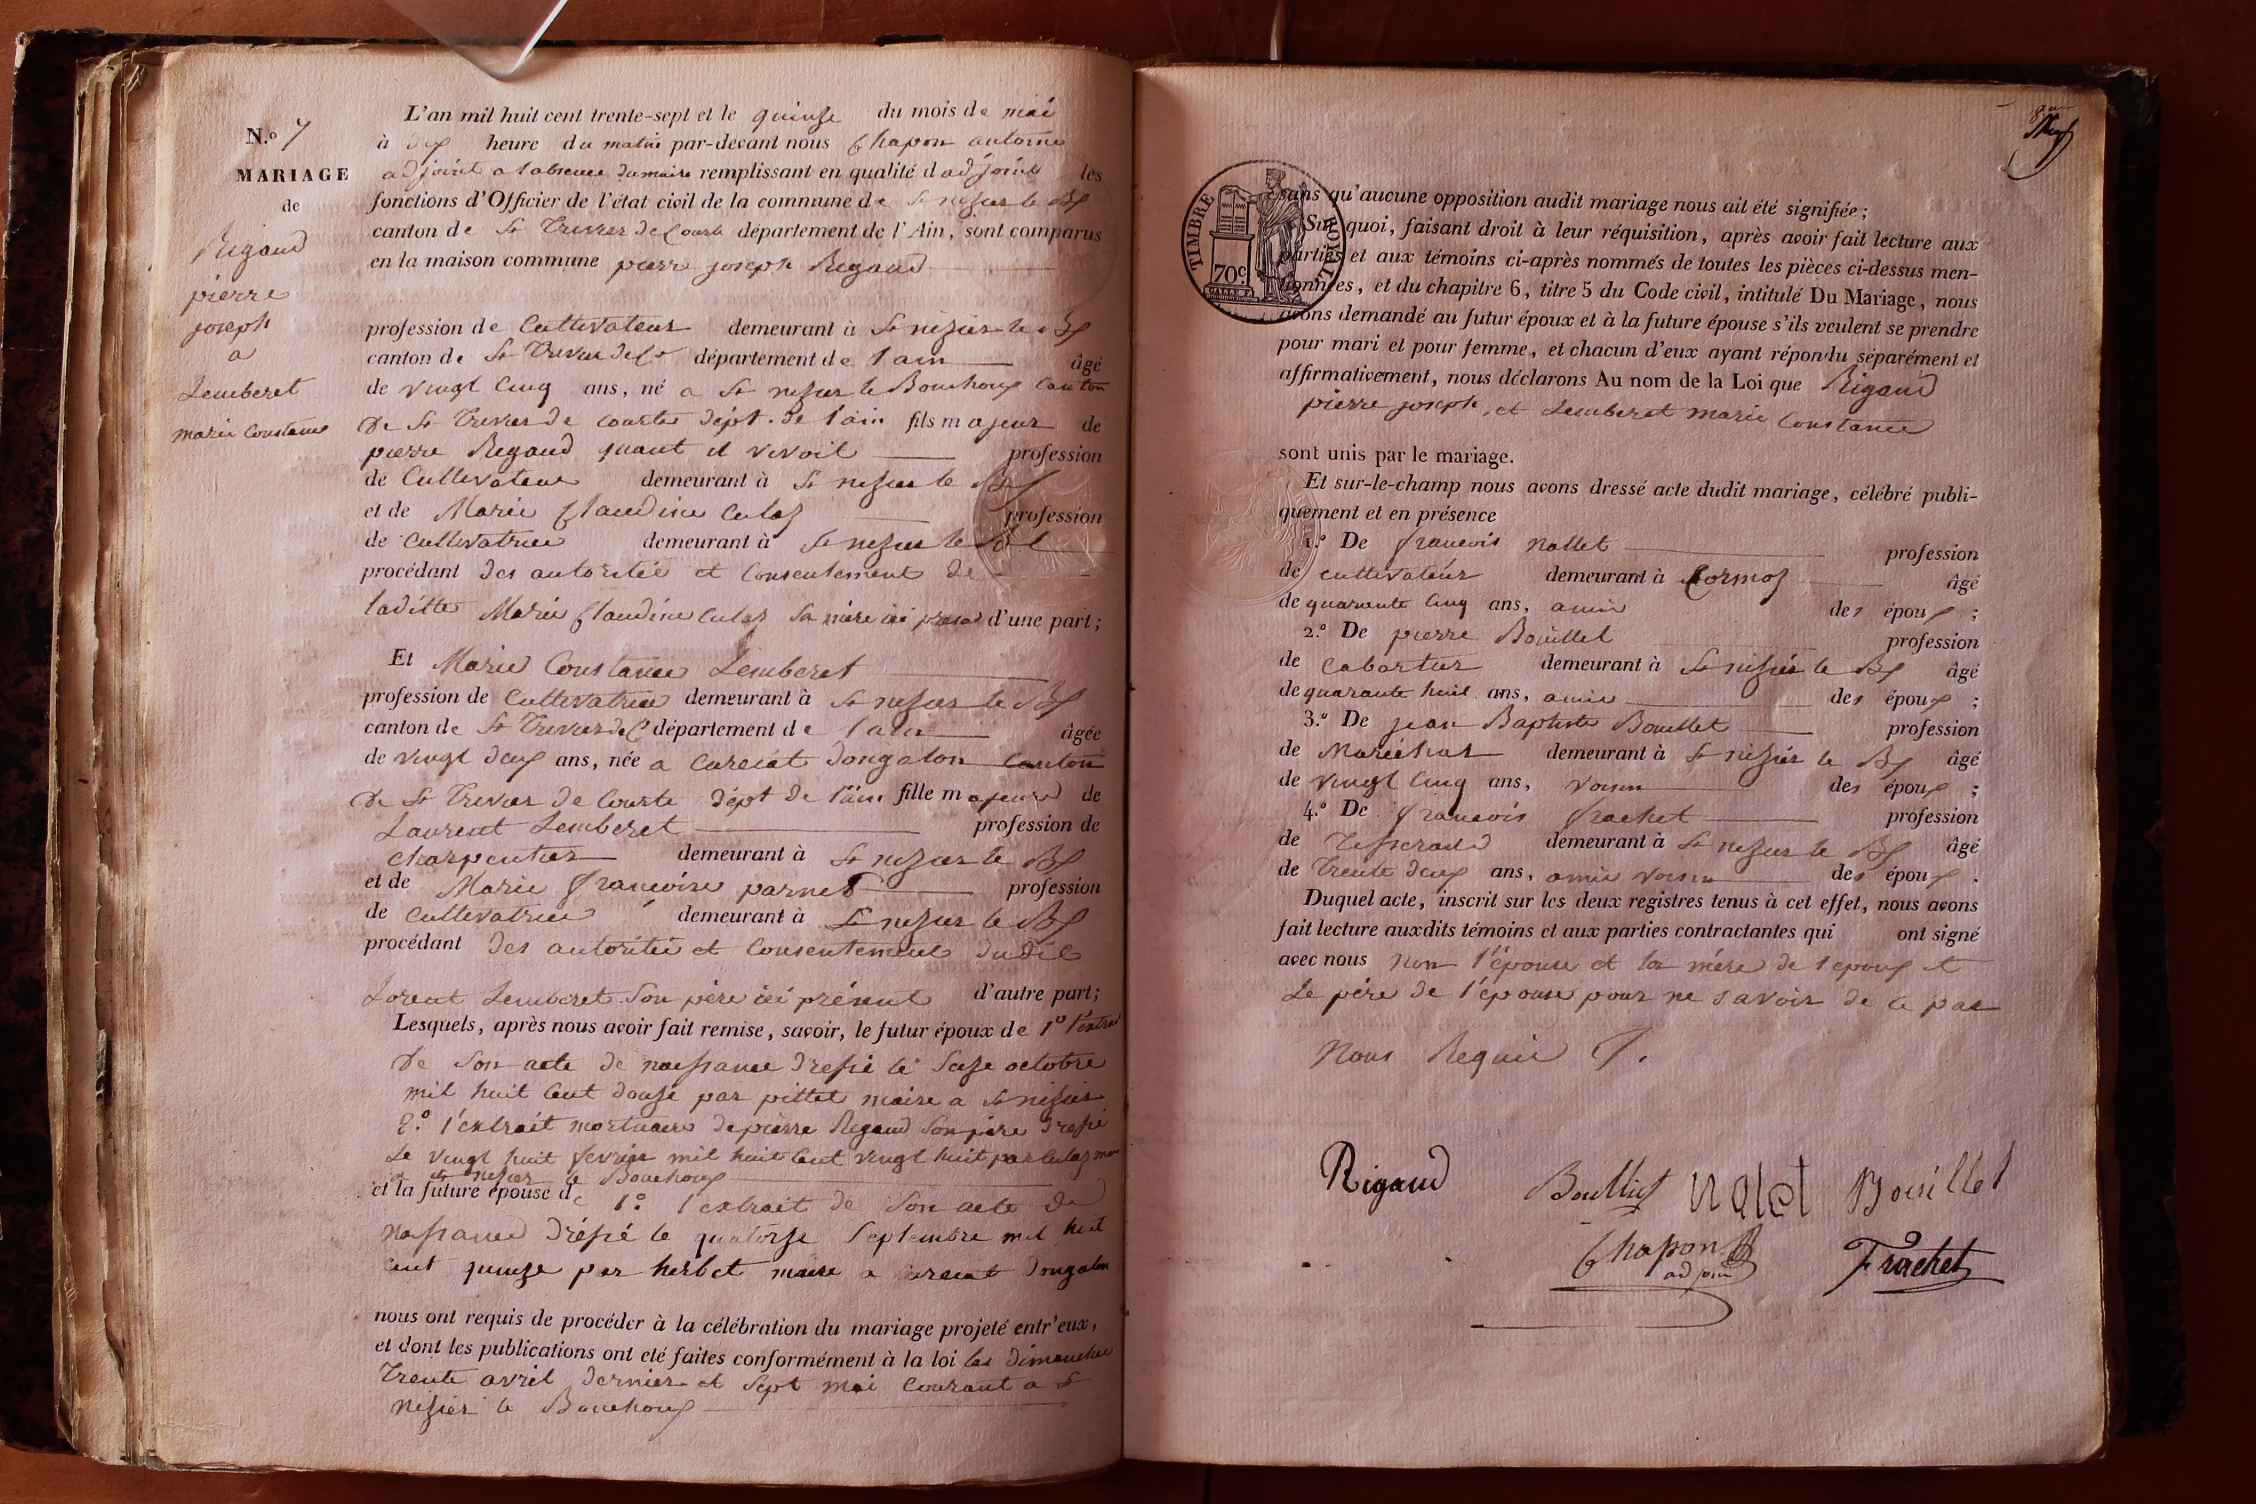 N.o 7
MARIAGE
de
Rigaud
pierre
joseph
a
Lemberet
marie Constance
L'an mil huit cent trente-sept et le quinze du mois de mai
à dix heure du matin par-devant nous Chapon antoine
adjoint a l'absence du maire remplissant en qualité d adjoint les
fonctions d'Officier de l'état civil de la commune de St nizier le Bx
canton de St Trivier de Courte département de l'Ain, sont comparus
en la maison commune pierre joseph Rigaud
profession de Cultivateur demeurant à St nizier le Bx
canton de St Trivier de Ct département de l'ain âgé
de vingt cinq ans, né a St nizier le Bouchoux canton
de St Trivier de Courte dépt. de l'ain fils majeur de
pierre Rigaud quant il vivoit profession
de Cultivateur demeurant à St nizier le Bx
et de Marie Claudine Culaz profession
de Cultivatrice demeurant à St nizier le Bx
procédant des autoritée et Consentement de
laditte Marie Claudine Culaz sa mère ici présente d'une part;
Et Marie Constance Lemberet
profession de Cultivatrice demeurant à St nizier le Bx
canton de St Trivier de Ct département de l'ain âgée
de vingt deux ans, née a Curciat dongalon Canton
de St Trivier de Courte dépt de l'ain fille majeure de
Laurent Lemberet profession de
Charpentier demeurant à St nizier le Bx
et de Marie francoise parnet profession
de Cultivatrice demeurant à St nizier le Bx
procédant des autoritée et Consentement dudit
Lorent Lemberet son père ici présent d'autre part;
Lesquels, après nous avoir fait remise, savoir, le futur époux de 1o l'extrait
de son acte de naissance dressé le seize octobre
mil huit cent douze par pittet maire a St nizier
2.o l'extrait mortuaire de pierre Rigaud son père dressé
Le vingt huit fevrier mil huit cent vingt huit par Culaz maire
a St nizier le Bouchoux
et la future épouse de 1.o l'extrait de son acte de
naissance dréssé le quatorze septembre mil huit
cent quinze par herbet maire a Curciat dongalon
nous ont requis de procéder à la célébration du mariage projeté entr'eux,
et dont les publications ont été faites conformément à la loi les dimanche
trente avril dernier et sept mai courant a St
nizier le Bouchoux
TIMBRE ROYAL
70c.
sans qu'aucune opposition audit mariage nous ait été signifiée;
Sur quoi, faisant droit à leur réquisition, après avoir fait lecture aux
parties et aux témoins ci-après nommés de toutes les pièces ci-dessus men-
tionnées, et du chapitre 6, titre 5 du Code civil, intitulé Du Mariage, nous
avons demandé au futur époux et à la future épouse s'ils veulent se prendre
pour mari et pour femme, et chacun d'eux ayant répondu séparément et
affirmativement, nous déclarons Au nom de la Loi que Rigaud
pierre joseph, et Lemberet marie Constance
sont unis par le mariage.
Et sur-le-champ nous avons dressé acte dudit mariage, célébré publi-
quement et en présence
1.o De francois nallet profession
de cultivateur demeurant à Cormoz âgé
de quarante cinq ans, amie des époux;
2.o De pierre Bouillet profession
de cabartier demeurant à St nizier le Bx âgé
de quarante huit ans, amie des époux;
3.o De jean Baptiste Bouillet profession
de Maréchal demeurant à St nizier le Bx âgé
de vingt cinq ans, voisin des époux;
4.o De francois frachet profession
de Tisserand demeurant à St nizier le Bx âgé
de trente deux ans, amie voisin des époux.
Duquel acte, inscrit sur les deux registres tenus à cet effet, nous avons
fait lecture auxdits témoins et aux parties contractantes qui ont signé
avec nous non l'épouse et la mère de l'epoux et
Le père de l'épouse pour ne savoir de ce par
nous Requis
Rigaud Bouillet nalet Bouillet
Chapon adjoint Frachet